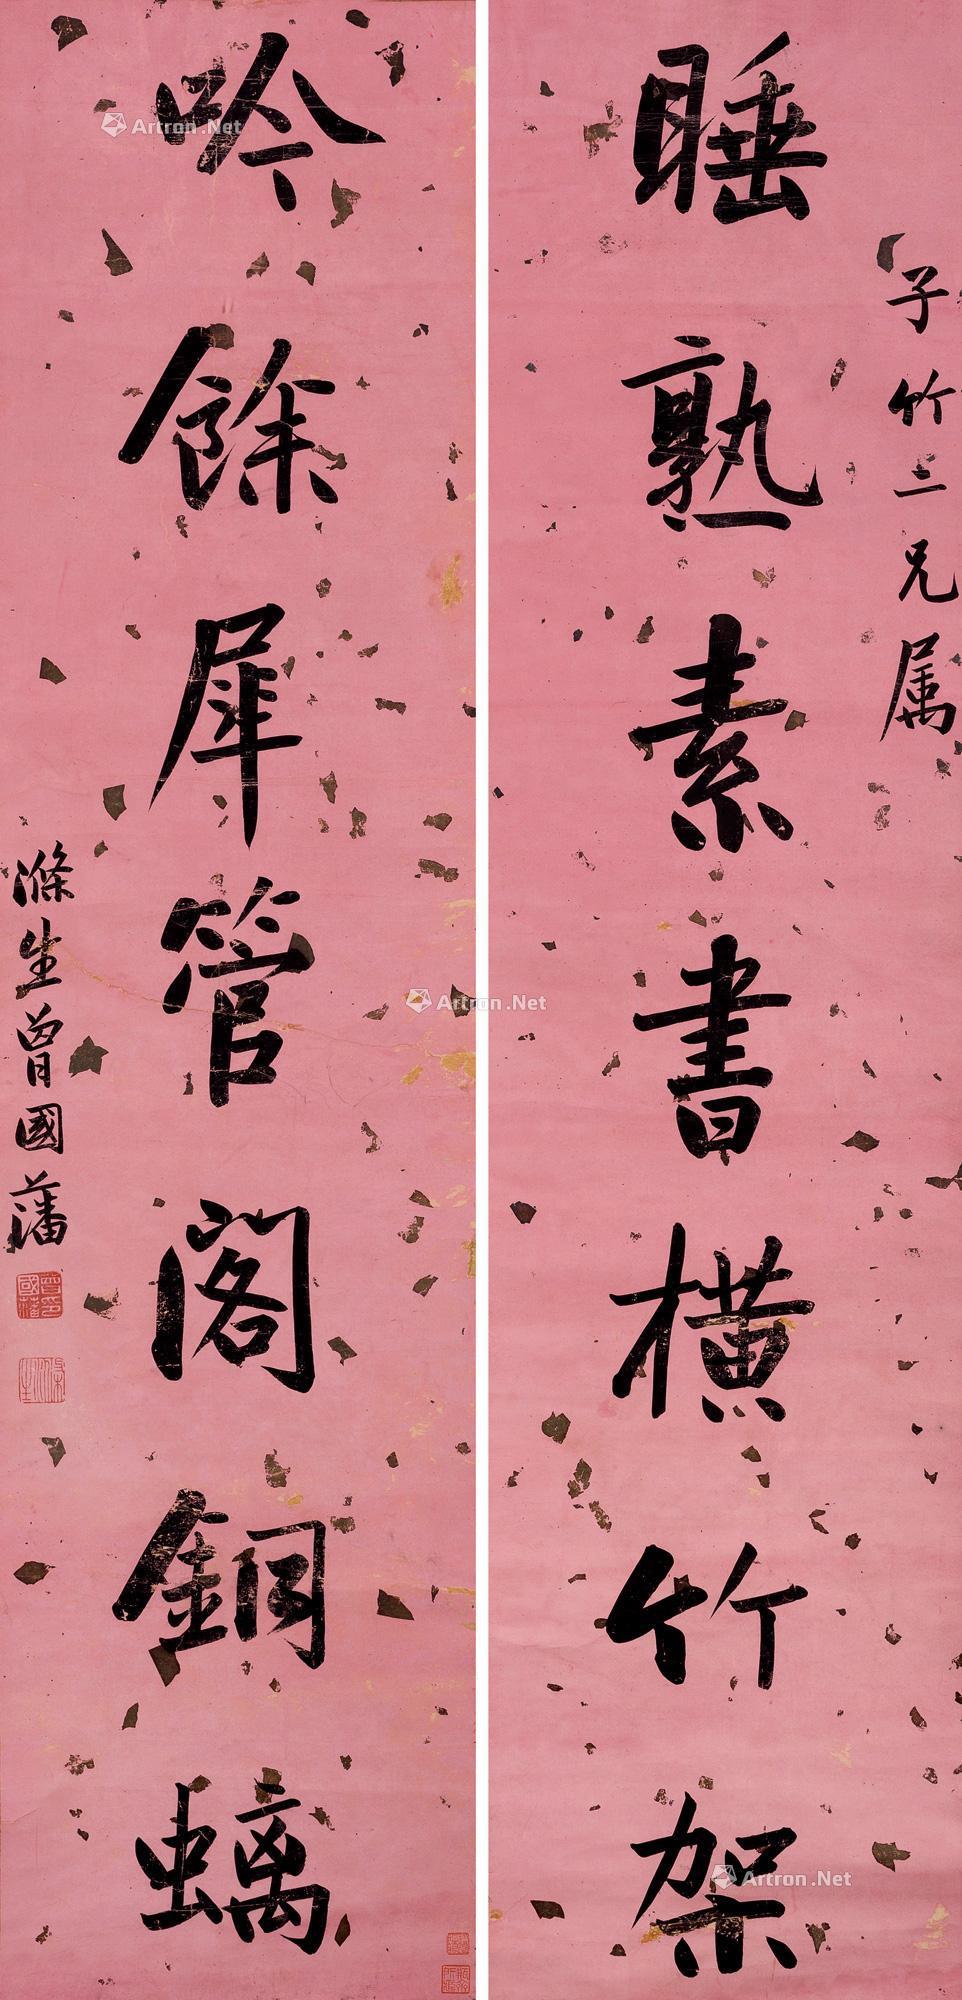 子竹三兄属
睡熟素書橫竹架
吟餘犀管閣銅螭
滌生曾國藩
曾國藩印
滌生
Artron.Net
Artron.Net
Artron.Net